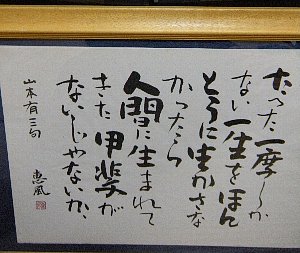 たった一度しか
ない一生をほん
とうに生かさな
かったら
人間に生まれて
きた甲斐が
ないじゃないか、
山本有三句
恵風